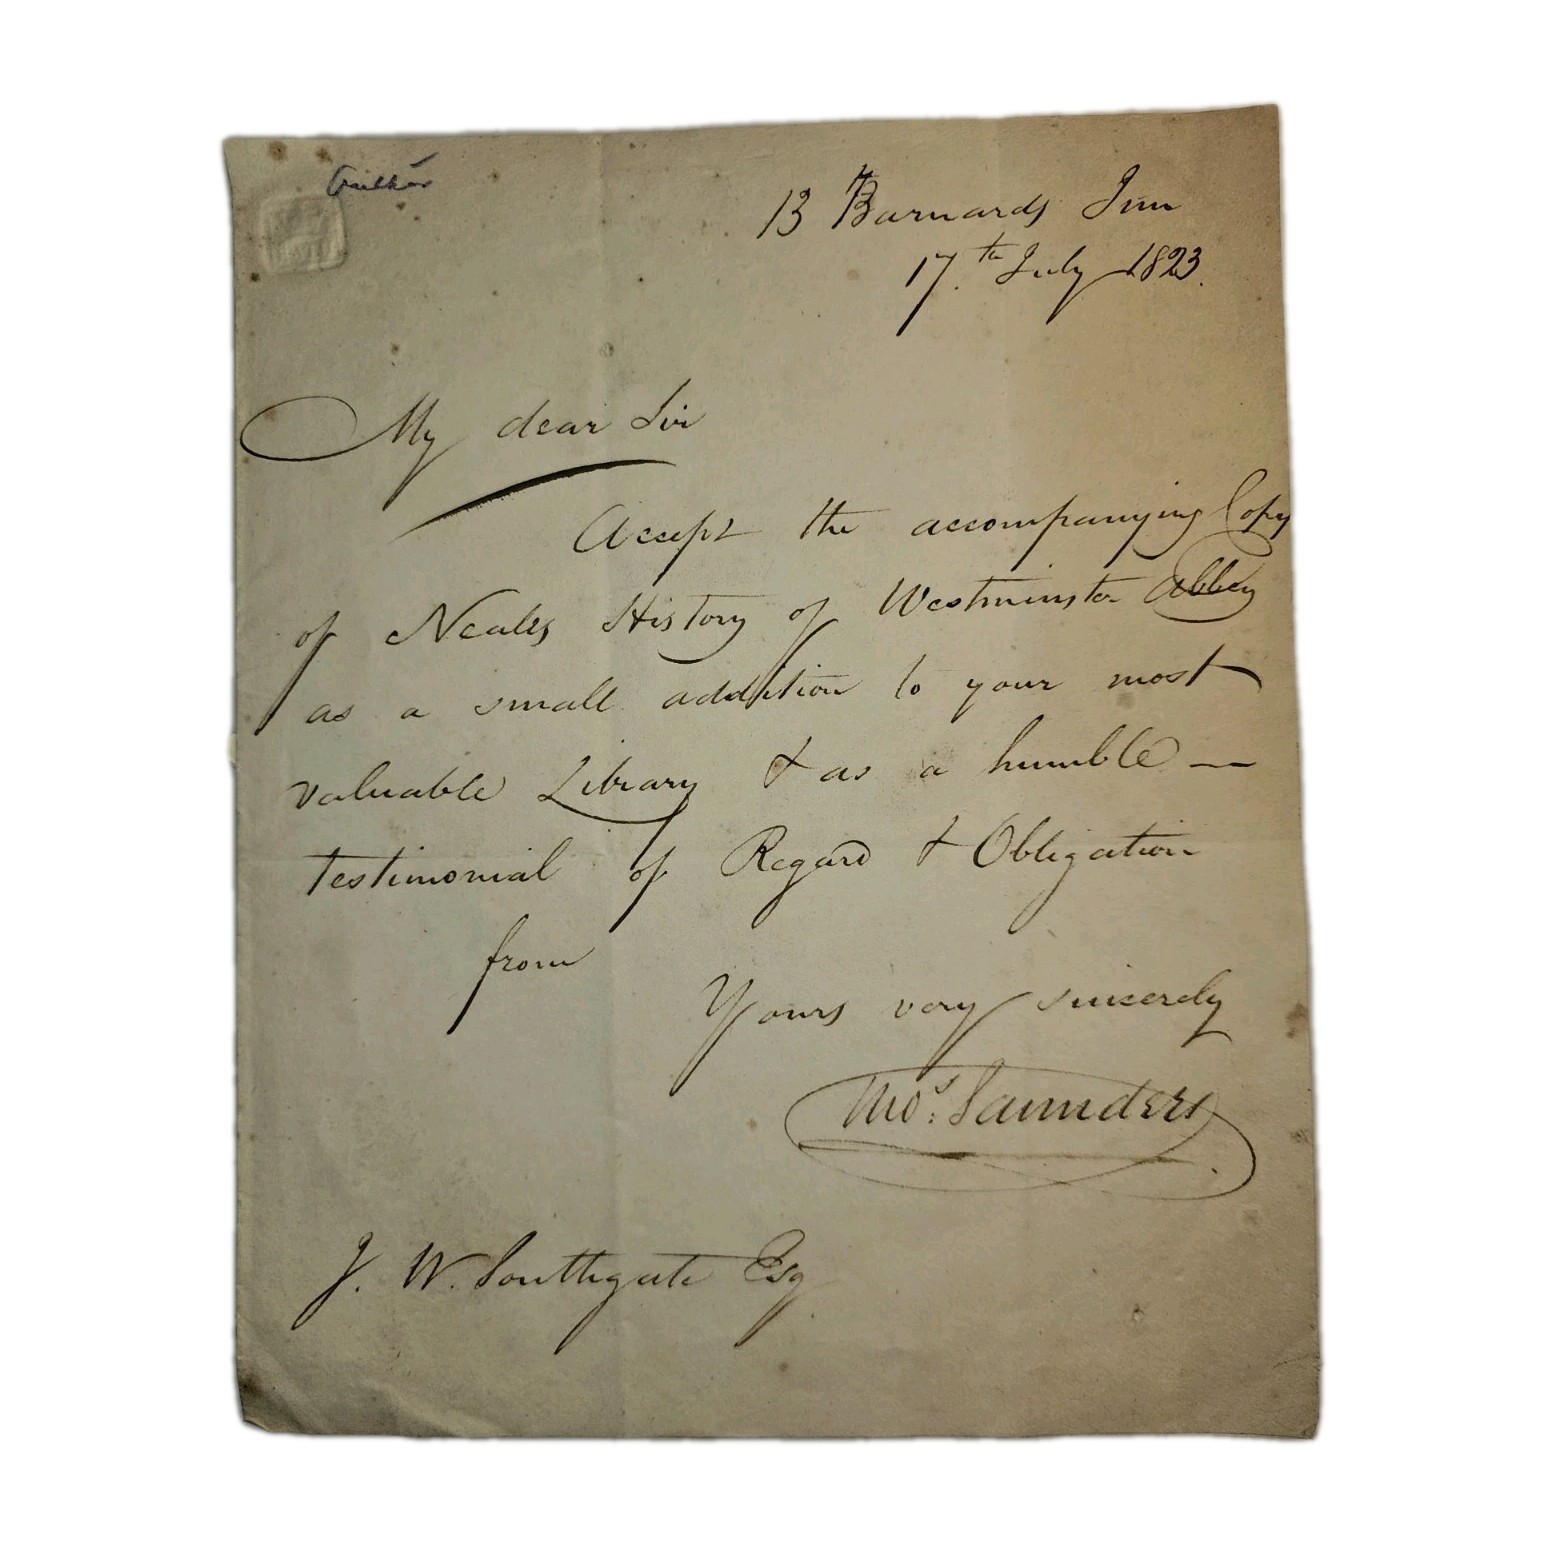 Author
13 Barnards Inn
17.th July 1823.
My dear Sir
Accept the accompanying Copy
of Neales History of Westminster Abbey
as a small addition to your most
valuable Library & as a humble —
testimonial of Regard & Obligation
from
Yours very sincerely
Thos. Saunders
J. W. Southgate Esq